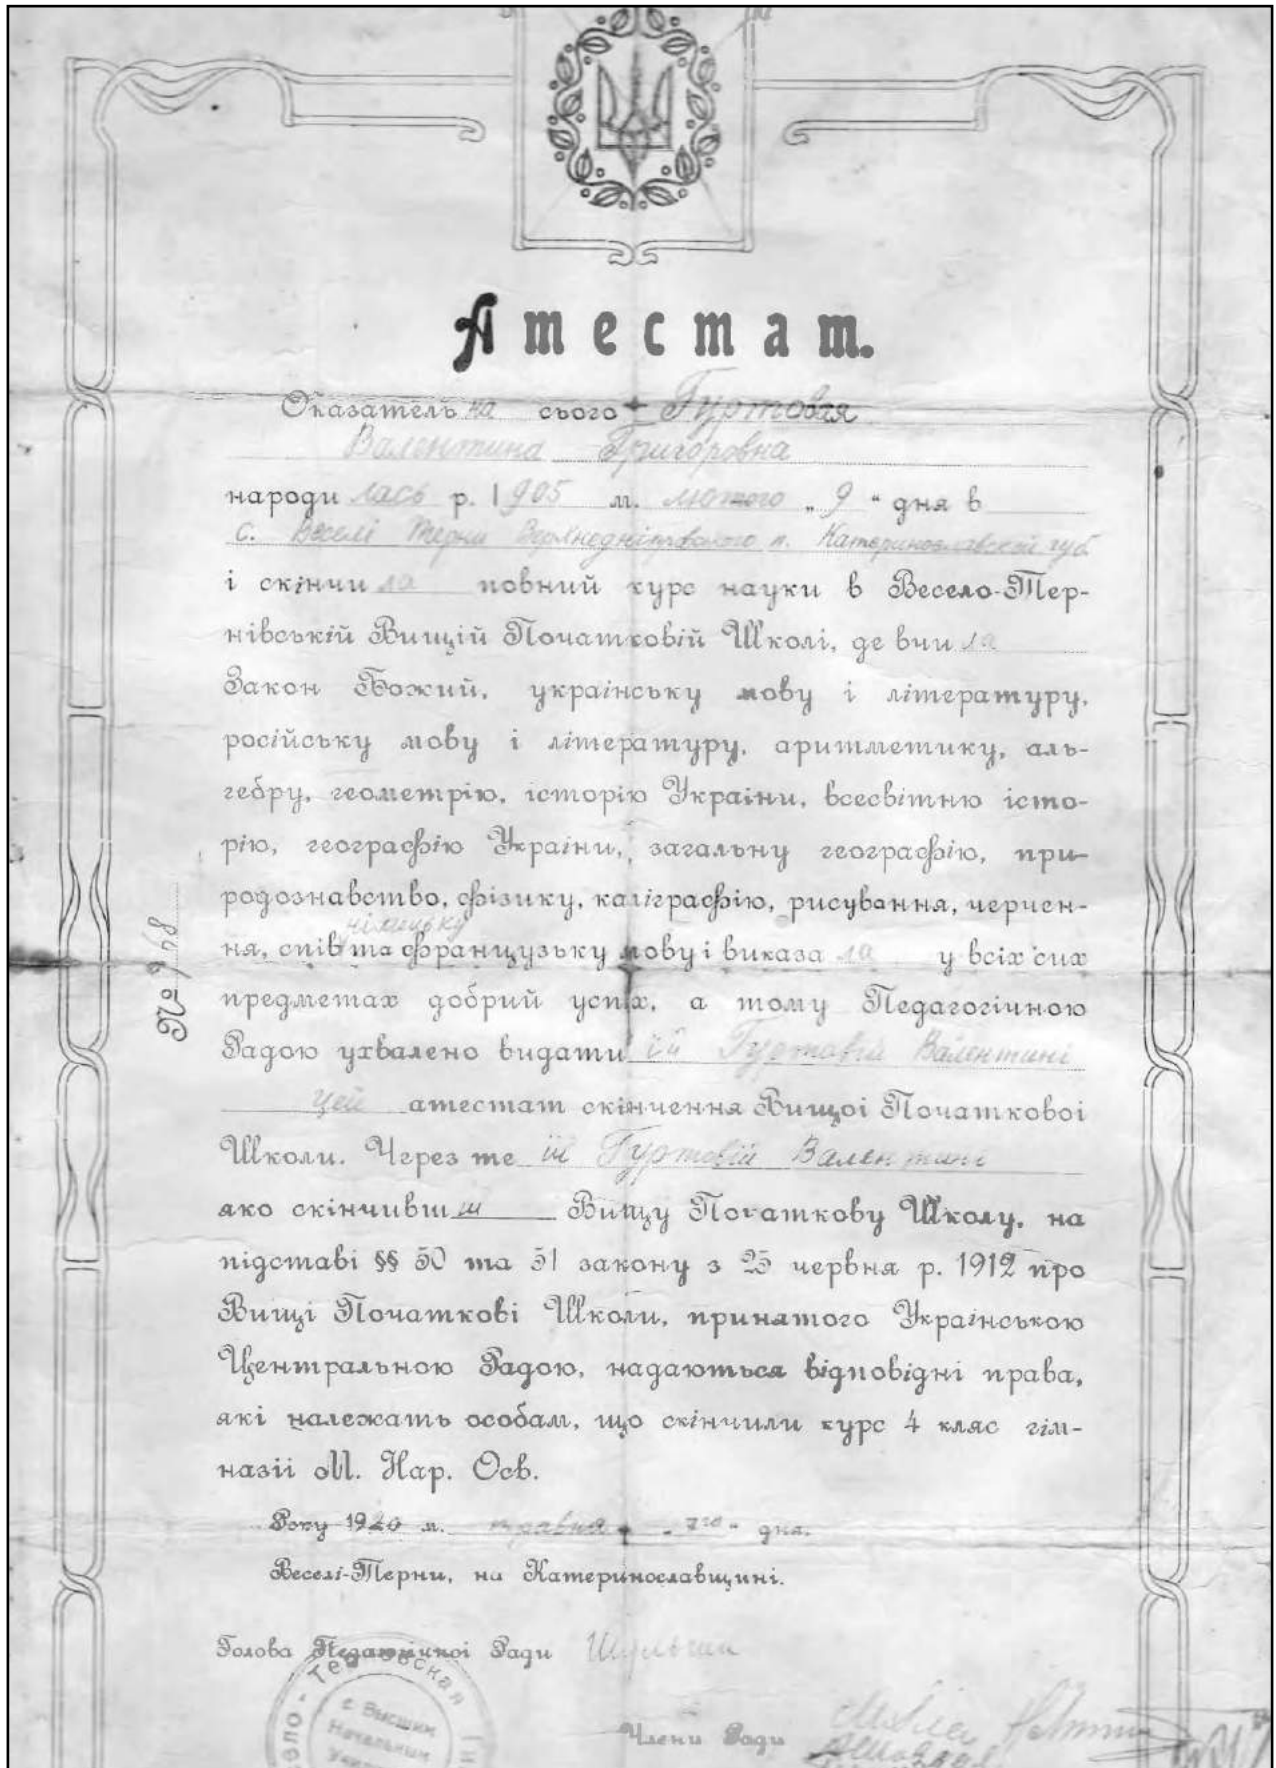 Атестат.
Оказатель на сього Гуртовая
Валентина Григоровна
народилась р. 1905 м. лютого „9“ дня в
с. Веселі Терни Верхнедніпровского п. Катеринославской губ.
і скінчила повний курс науки в Весело-Тер-
нівській Вищій Початковій Школі, де вчила
Закон Божий, українську мову і літературу,
російську мову і літературу, аритметику, аль-
гебру, геометрію, історію України, всесвітню істо-
рію, географію України, загальну географію, при-
родознавство, фізику, каліграфію, рисування, черчен-
німецьку
ня, спів та французьку мову і виказала у всіх сих
№ 968
предметах добрий успіх, а тому Педагогічною
Радою ухвалено видати їй Гуртовій Валентині
цей атестат скінчення Вищоі Початковоі
Школи. Через те їй Гуртовій Валентині
яко скінчивш Вищу Початкову Школу, на
підставі §§ 50 та 51 закону з 25 червня р. 1912 про
Вищі Початкові Школи, принятого Українською
Центральною Радою, надаються відповідні права,
які належать особам, що скінчили курс 4 кляс гім-
назіі М. Нар. Осв.
Року 1920 м. травня „7го“ дня.
Веселі-Терни, на Катеринославщині.
Голова Педагогічноі Ради Шульгин
с Высшим
Начальным
Члени Ради